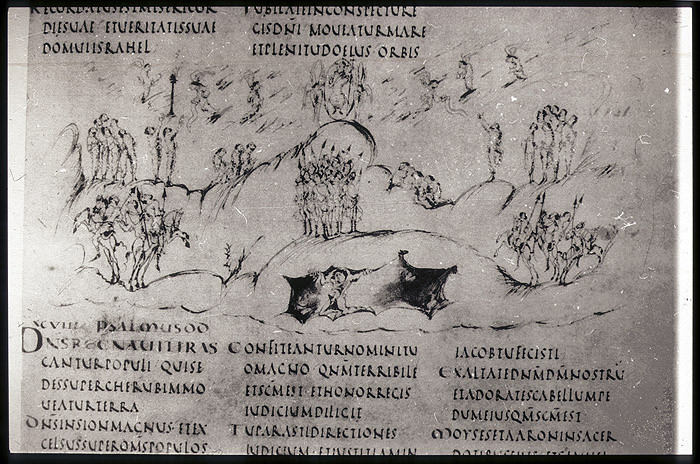 RECORDATUSESTMISERICOR
DIESUAE ETUERITATISSUAE
DOMUIISRAHEL
IUBILATEINCONSPECTURE
CISDNI MOUEATURMARE
ETPLENITUDOEIUS ORBIS
XCVIII PSALMUS
DNSREGNAUITIRAS
CANTURPOPULI QUISE
DESSUPERCHERUBIMMO
UEATURTERRA
DNSINSIONMAGNUS ETEX
CELSUSSUPEROMSPOPULOS
CONFITEANTURNOMINITU
OMAGNO QNMTERRIBILE
ETSCMEST ETHONORREGIS
IUDICIUMDILIGIT
TUPARASTIDIRECTIONES
IUDICIUM ETIUSTITIAMIN
IACOBTUFECISTI
EXALTATEDNMDMNOSTRU
ETADORATESCABELLUMPE
DUMEIUSQMSCMEST
MOYSESETAARONINSACER